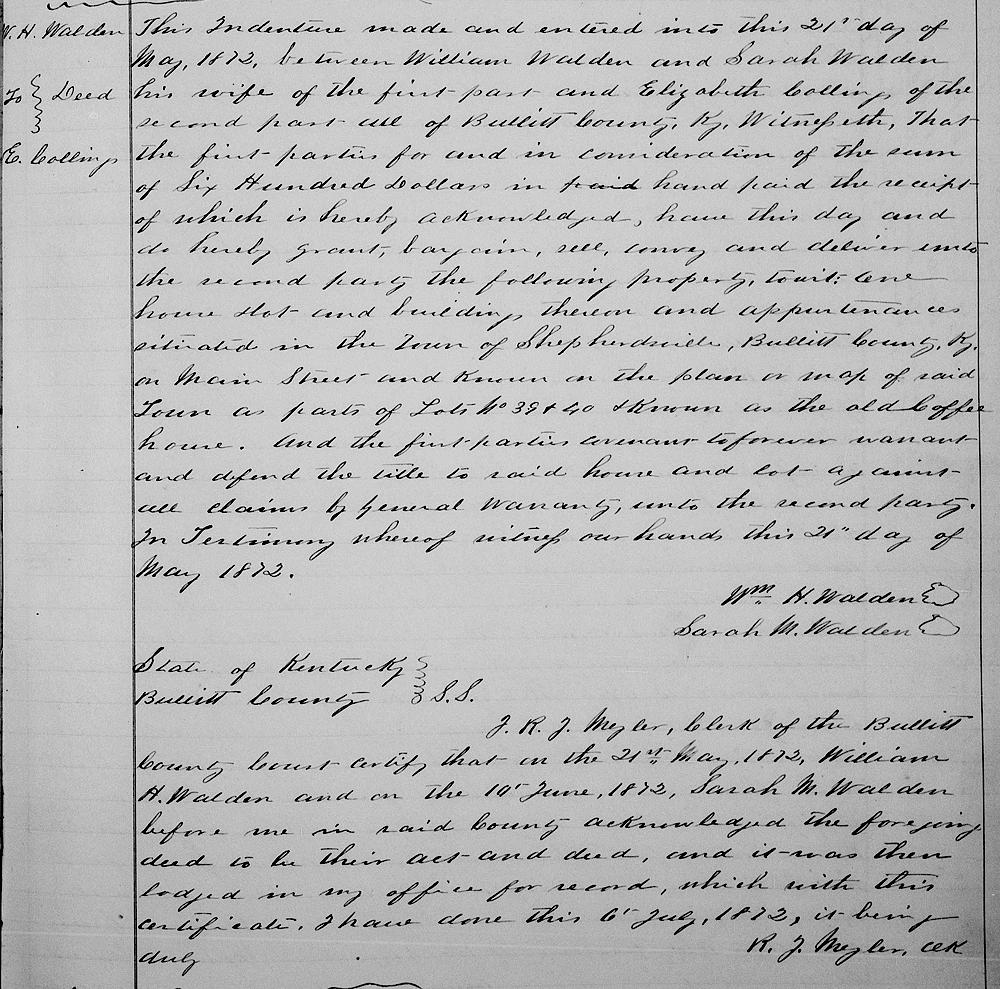 W. H. Walden
To } Deed
E. Collings
This Indenture made and entered into this 21st day of
May, 1872, between William Walden and Sarah Walden
his wife of the first part and Elizabeth Collings of the
second part all of Bullitt County, Ky, Witnesseth, That
the first parties for and in consideration of the sum
of Six Hundred Dollars in paid hand paid the receipt
of which is hereby acknowledged, have this day and
do hereby grant, bargain, sell, convey and deliver unto
the second party the following property, towit: One
house & lot and buildings thereon and appurtenances
situated in the Town of Shepherdsville, Bullitt County, Ky.
on Main Street and Known on the plan or map of said
Town as parts of Lots No 39 & 40 & Known as the old Coffee
house. And the first parties covenant to forever warrant
and defend the title to said house and lot against
all claims by General Warranty, unto the second party.
In Testimony whereof witness our hands this 21" day of
May 1872.
Wm H. Walden
Sarah M. Walden
State of Kentucky }
Bullitt County } S.S.
I, R. J. Meyler, Clerk of the Bullitt
County Court certify that on the 21st May, 1872, William
H. Walden and on the 10t June, 1872, Sarah M. Walden
before me in said County acknowledged the foregoing
deed to be their act and deed, and it was then
lodged in my office for record, which with this
certificate. I have done this 6t July, 1872, it being
duly
R. J. Meyler, Clk